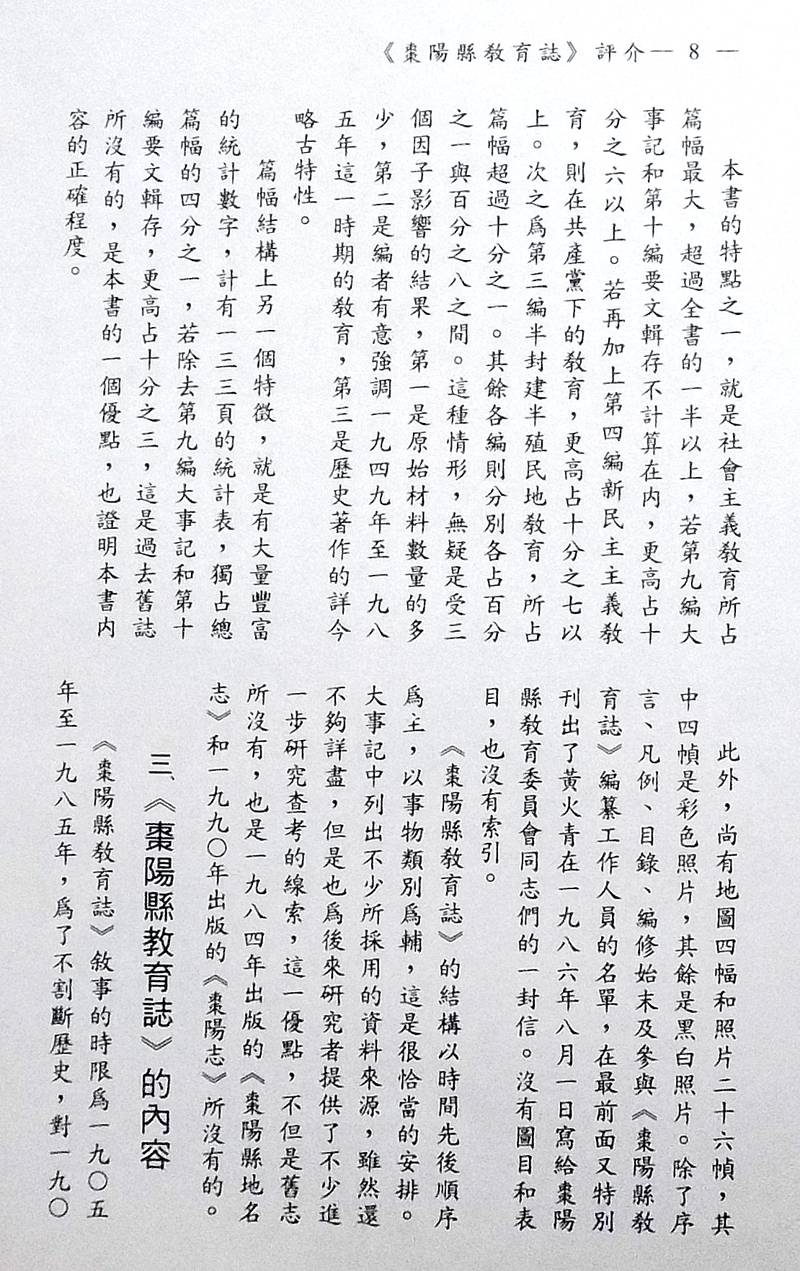 《棗陽縣教育誌》評介— 8 —
本書的特點之一，就是社會主義教育所占
篇幅最大，超過全書的一半以上，若第九編大
事記和第十編要文輯存不計算在內，更高占十
分之六以上。若再加上第四編新民主主義教
育，則在共產黨下的教育，更高占十分之七以
上。次之爲第三編半封建半殖民地教育，所占
篇幅超過十分之一。其餘各編則分別各占百分
之一與百分之八之間。這種情形，無疑是受三
個因子影響的結果，第一是原始材料數量的多
少，第二是編者有意強調一九四九年至一九八
五年這一時期的教育，第三是歷史著作的詳今
略古特性。
篇幅結構上另一個特徵，就是有大量豐富
的統計數字，計有一三三頁的統計表，獨占總
篇幅的四分之一，若除去第九編大事記和第十
編要文輯存，更高占十分之三，這是過去舊誌
所沒有的，是本書的一個優點，也證明本書內
容的正確程度。
此外，尚有地圖四幅和照片二十六幀，其
中四幀是彩色照片，其餘是黑白照片。除了序
言、凡例、目錄、編修始末及參與《棗陽縣教
育誌》編纂工作人員的名單，在最前面又特別
刊出了黃火青在一九八六年八月一日寫給棗陽
縣教育委員會同志們的一封信。沒有圖目和表
目，也沒有索引。
《棗陽縣教育誌》的結構以時間先後順序
爲主，以事物類別爲輔，這是很恰當的安排。
大事記中列出不少所採用的資料來源，雖然還
不夠詳盡，但是也爲後來研究者提供了不少進
一步研究查考的線索，這一優點，不但是舊志
所沒有，也是一九八四年出版的《棗陽縣地名
志》和一九九〇年出版的《棗陽志》所沒有的。
三、《棗陽縣教育誌》的內容
《棗陽縣教育誌》敘事的時限爲一九〇五
年至一九八五年，爲了不割斷歷史，對一九〇